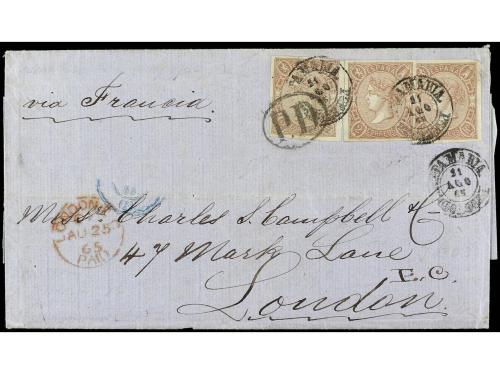 via Francia.
P.D.
STA MARIA
21
AGO
65
LONDON
AU 25
65
PAID
Messrs Charles S. Campbell & Co
47 Mark Lane
E.C.
London.